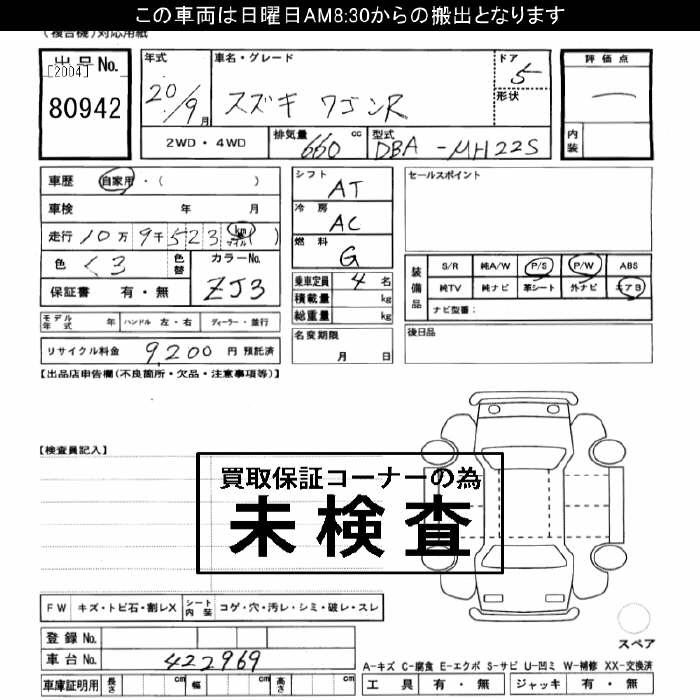 この車両は日曜日AM8:30からの搬出となります
(複合機)対応用紙
出品No.
[2004]
80942
年式
20/9月
車名・グレード
スズキ ワゴンR
ドア
5
形状
評価点
内装
2WD・4WD
排気量 660 cc
型式 DBA-MH22S
車歴 自家用・( )
車検 年 月
走行 10万9千523 km マイル ( )
色 くろ 色替
カラーNo. ZJ3
保証書 有・無
シフト AT
冷房 AC
燃料 G
乗車定員 4名
積載量 kg
総重量 kg
セールスポイント
装備品
S/R 純A/W P/S P/W ABS
純TV 純ナビ 革シート 外ナビ エアB
ナビ型番:
モデル年式 年 ハンドル 左・右 ディーラー・並行
リサイクル料金 9,200 円 預託済
名変期限 月 日
後日品
【出品店申告欄(不良箇所・欠品・注意事項等)】
【検査員記入】
買取保証コーナーの為
未検査
FW キズ・トビ石・割レX シート内装 コゲ・穴・汚レ・シミ・破レ・スレ
スペア
登録No.
車台No. 422969
A-キズ C-腐食 E-エクボ S-サビ U-凹ミ W-補修 XX-交換済
車庫証明用 長さ cm 幅 cm 高さ cm
工具 有・無 ジャッキ 有・無